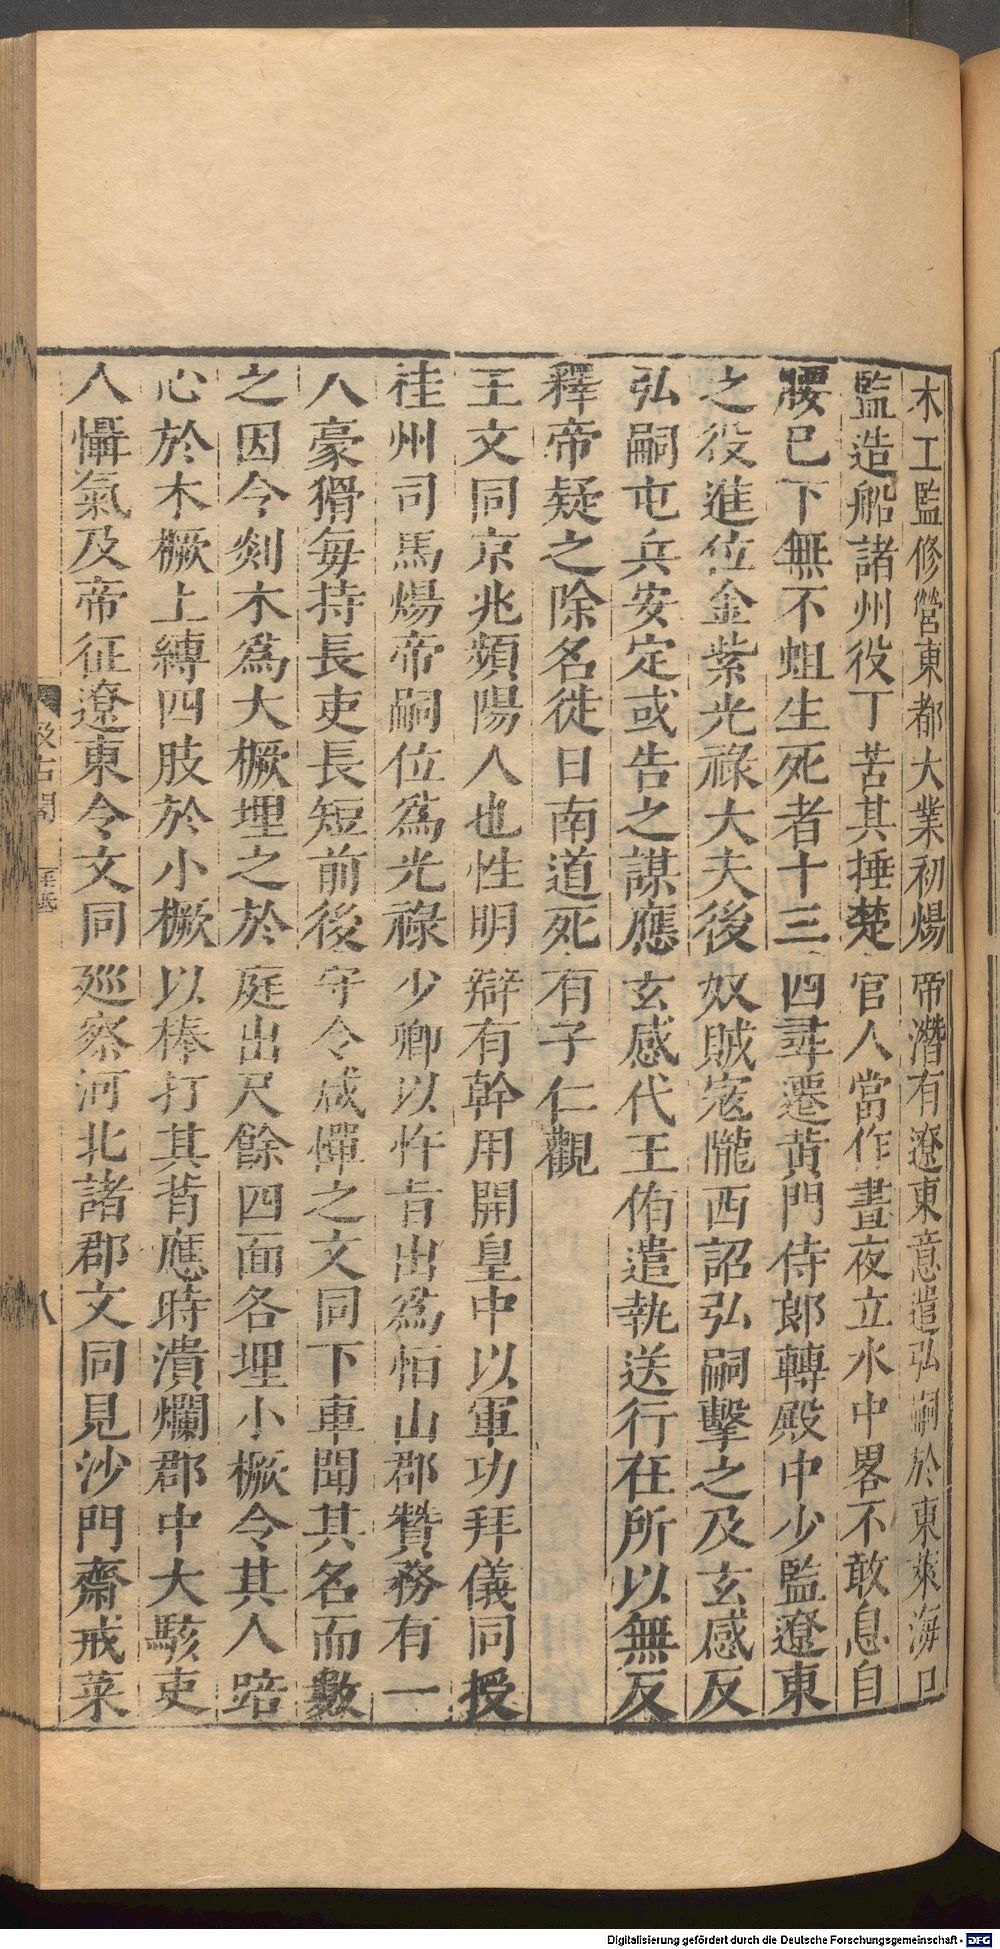 木工監修營東都大業初煬帝潛有遼東意遣弘嗣於東萊海口
監造船諸州役丁苦其捶楚官人當作晝夜立水中畧不敢息自
腰已下無不蛆生死者十三四尋遷黃門侍郎轉殿中少監遼東
之役進位金紫光祿大夫後奴賊寇隴西詔弘嗣擊之及玄感反
弘嗣屯兵安定或告之謀應玄感代王侑遣執送行在所以無反
釋帝疑之除名徙日南道死有子仁觀
王文同京兆頻陽人也性明辯有幹用開皇中以軍功拜儀同授
桂州司馬煬帝嗣位爲光祿少卿以忤旨出爲恒山郡贊務有一
人豪猾每持長吏長短前後守令咸憚之文同下車聞其名而數
之因令剡木爲大橛埋之於庭出尺餘四面各埋小橛令其人踣
心於木橛上縛四肢於小橛以棒打其背應時潰爛郡中大駭吏
人懾氣及帝征遼東令文同巡察河北諸郡文同見沙門齋戒菜
汲古閣
八
Digitalisierung gefördert durch die Deutsche Forschungsgemeinschaft - DFG